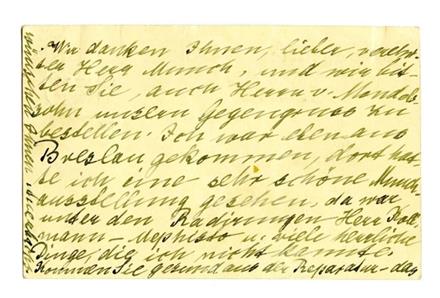 Wir danken Ihnen, lieber, verehr-
ter Herr Munch, und wir bit-
ten Sie, auch Herrn v. Mendels-
sohn unsern Gegengruss zu
bestellen. Ich war eben aus
Breslau gekommen, dort hat-
te ich eine sehr schöne Munch
ausstellung gesehen, da war
unter den Radjrungen Herr Koll
mann - Mephisto u. viele herrliche
Dinge, die ich nicht kannte.
Kommen Sie gesund aus der Reparatur - das